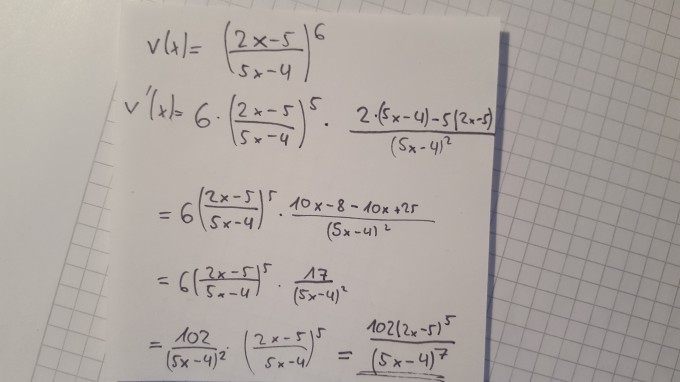 v(x) = ((2x-5)/(5x-4))^6
v'(x) = 6 · ((2x-5)/(5x-4))^5 · (2·(5x-4)-5(2x-5))/(5x-4)^2
= 6((2x-5)/(5x-4))^5 · (10x-8-10x+25)/(5x-4)^2
= 6((2x-5)/(5x-4))^5 · 17/(5x-4)^2
= 102/(5x-4)^2 · ((2x-5)/(5x-4))^5 = 102(2x-5)^5/(5x-4)^7